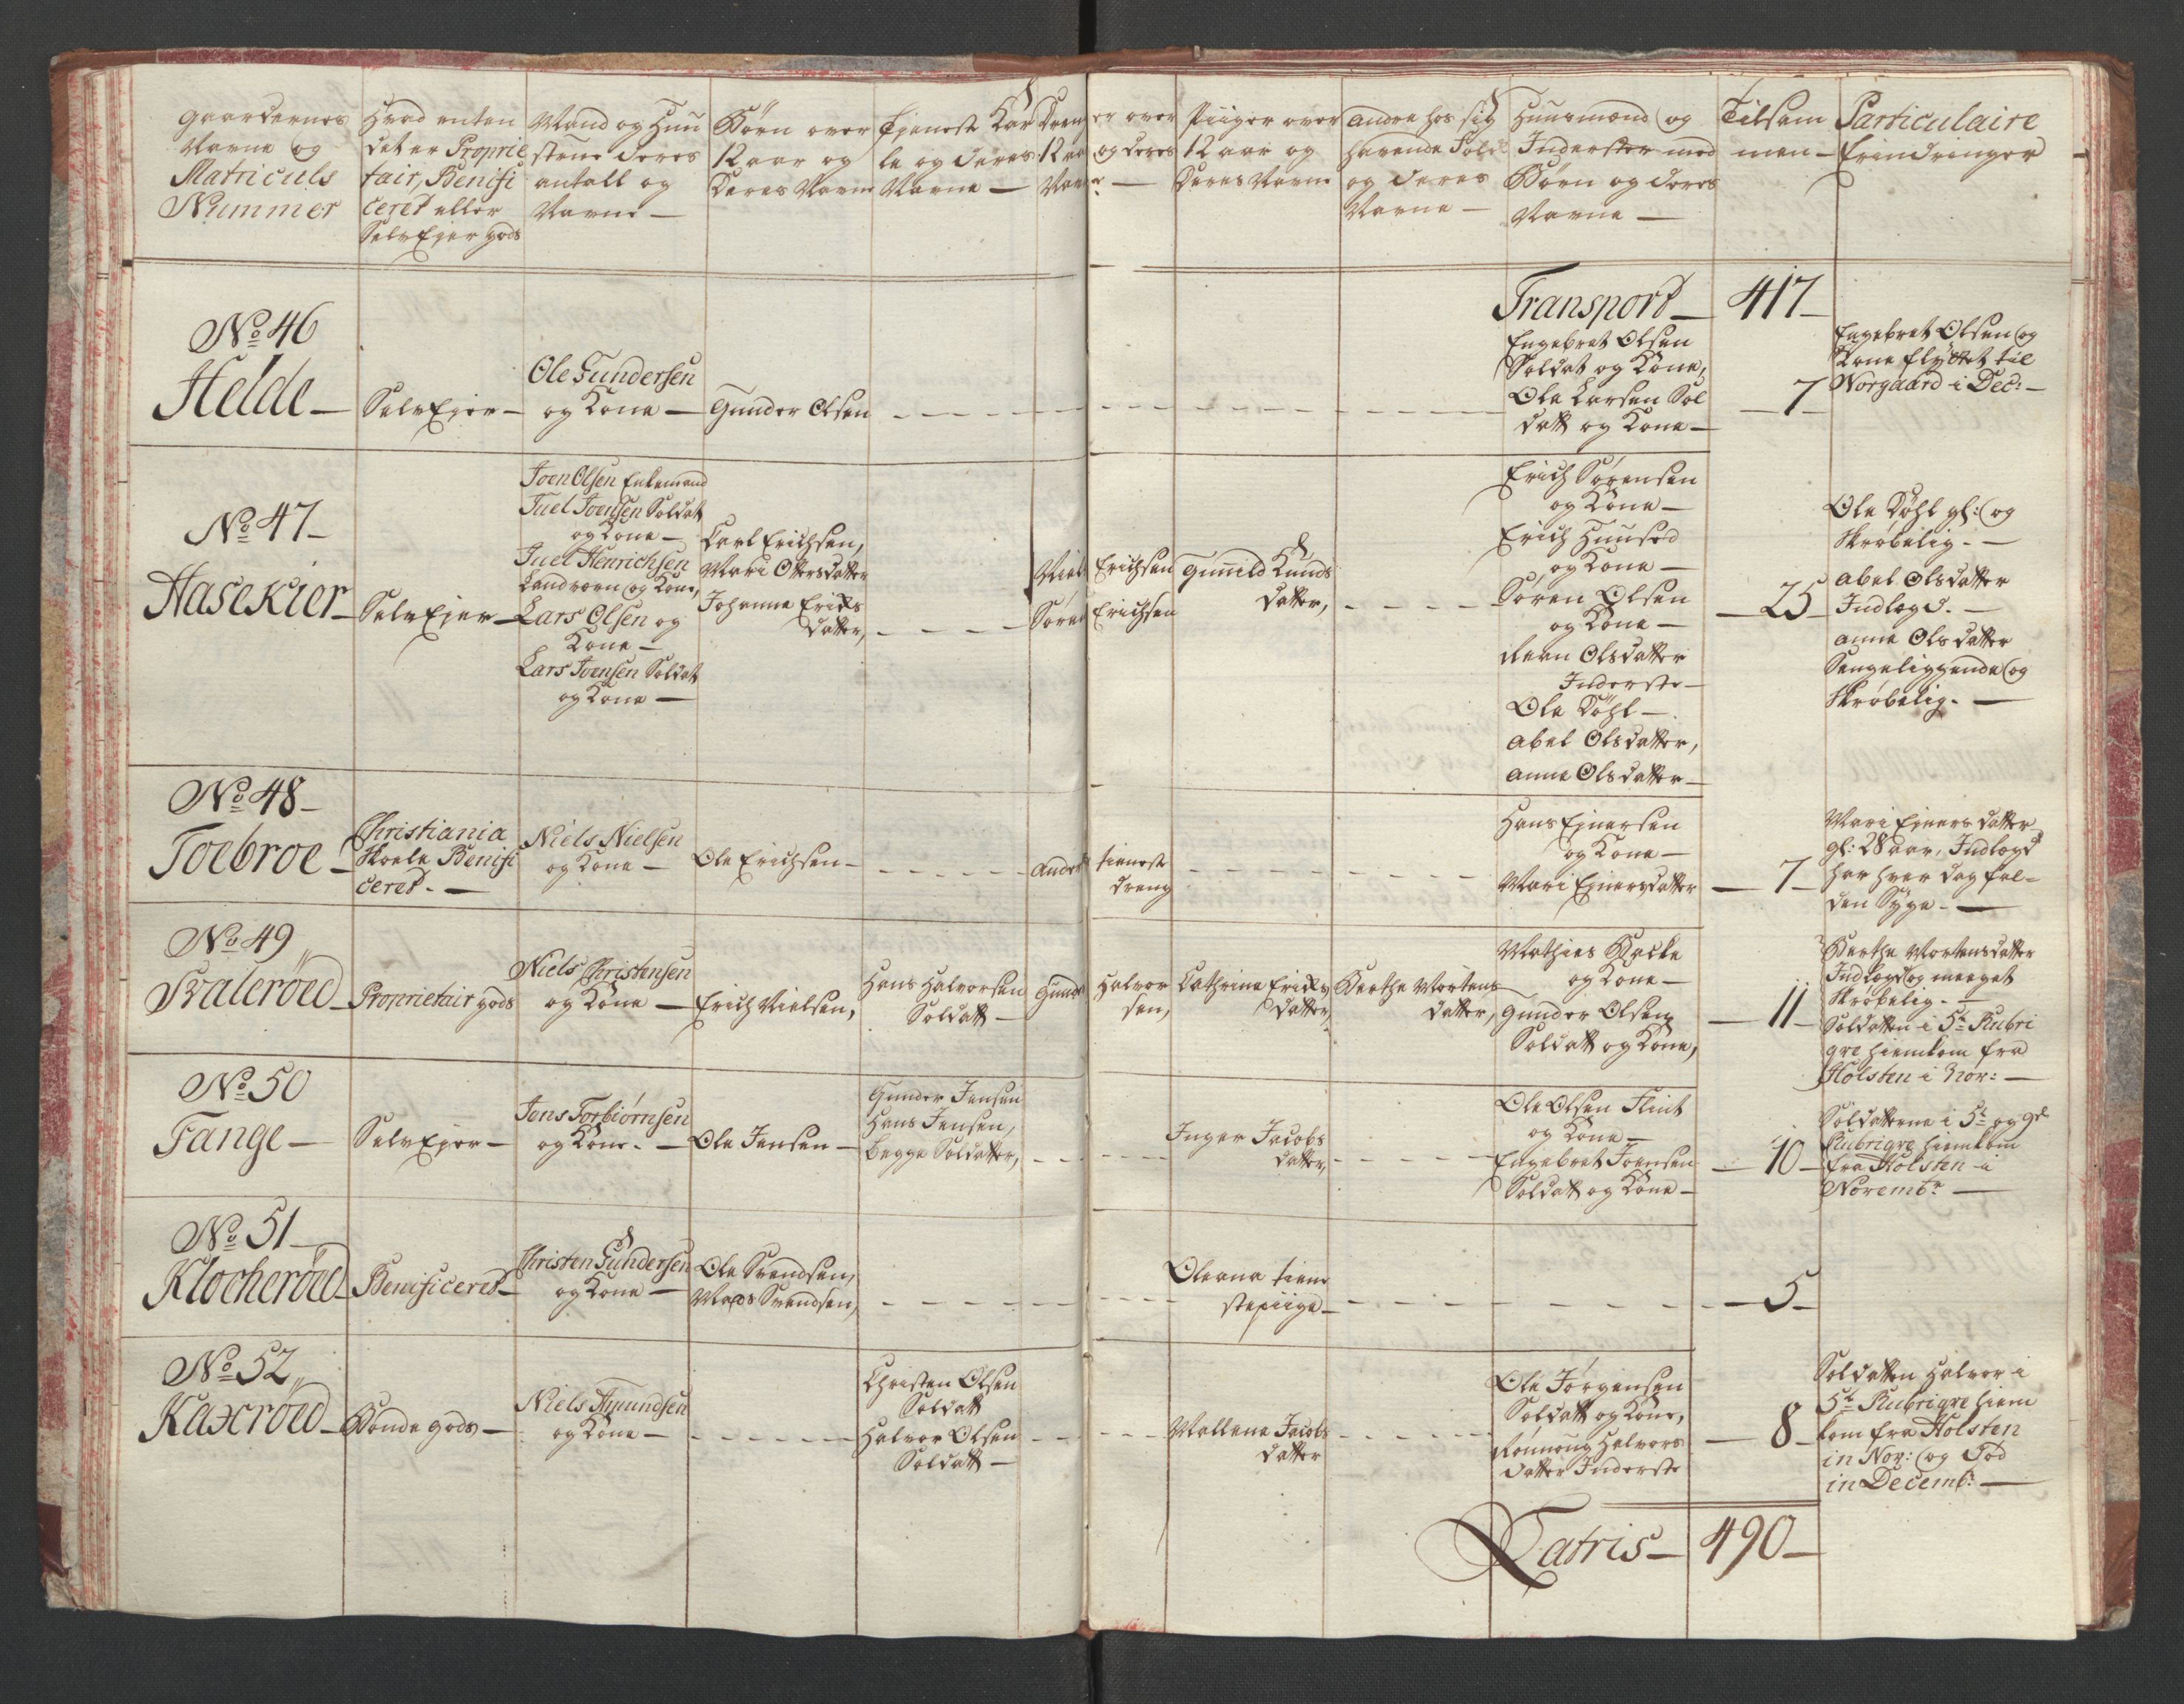 Gaardernes
Navne og
Matriculs
Nummer
Hvad enten
det er Proprie
tair, Benifi
ceret eller
SelvEjer gods
Mand og Huu
strue deres
antall og
Navne —
Børn over
12 aar og
deres Navne
Tjeneste Kar
le og deres
Navne —
Drenger over
12 aar og deres
Navne —
Piiger over
12 aar og
deres Navne
Andre hos sig
havende Folk
og deres
Navne —
Huusmænd og
Inderster med
Børn og deres
Navne —
Tilsam
men —
Particulaire
Erindringer
Transport — 417 —
No 46
Helde —
SelvEjer —
Ole Gundersen
og Kone —
Gunder Olsen
Engebret Olsen
Soldat og Kone,
Ole Larsen Sol
datt og Kone —
7
Engebret Olsen og
Kone flyttet til
Norgaard i Dec: —
No 47 —
Hasekier —
SelvEjer —
Joen Olsen Enkemand
Juel Joensen Soldat
og Kone —
Juel Henrichsen
Landværn og Kone,
Lars Olsen og
Kone —
Lars Joensen Soldat
og Kone —
Carl Erichsen,
Mari Ottersdatter
Johanne Erichs
datter,
Niels Erichsen
Søren Erichsen
Gunild Knuds
datter,
Erich Sørensen
og Kone —
Erich Huused
og Kone —
Søren Olsen
og Kone —
Olsdatter
Inderste —
Ole Døhl —
Abel Olsdatter,
Anne Olsdatter —
25
Ole Døhl gl: og
Skrøbelig. —
Abel Olsdatter
Indlagd. —
Anne Olsdatter
Sengeliggende og
Skrøbelig. —
No 48 —
Toebroe —
Christiania
Skoele Benifi
ceret. —
Niels Nielsen
og Kone —
Ole Erichsen —
Anders tieneste
dreng
Hans Ejnersen
og Kone —
Mari Ejnersdatter
7
Mari Ejners datter
gl: 28 aar, Indlagd
har hver dag fal-
den Syge. —
No 49
Balerøed —
Proprietair gods
Niels Christensen
og Kone —
Erich Nielsen,
Hans Halvorsen
Soldatt —
Gunder Halvor
sen,
Cathrine Erichs
datter,
Berthe Mortens
datter,
Mathies Bache
og Kone —
Gunder Olsen
Soldatt og Kone,
11
Berthe Mortensdatter
Indlagd og meeget
Skrøbelig. —
Soldatten i 5te Rubri
qve hiemkom fra
Holsten i Nov: —
No 50
Tange —
SelvEjer —
Jens Torbiørnsen
og Kone. —
Ole Jensen —
Gunder Jensen
Hans Jensen,
begge Soldatter,
Inger Jacobs
datter,
Ole Olsen Flint
og Kone —
Engebret Joensen
Soldatt og Kone —
10
Soldatterne i 5te og 9de
Rubriqve hiemkom
fra Holsten i
Novembr —
No 51
Klocherøed —
Benificeret —
Christen Gundersen
og Kone —
Ole Svendsen,
Mads Svendsen,
Oleana tiene
stepiige —
5
No 52
Kaxrøed —
Bonde gods —
Niels Amundsen
og Kone —
Christen Olsen
Soldatt
Halvor Olsen
Soldatt —
Mallene Jacobs
datter
Ole Jørgensen
Soldatt og Kone,
Rønnoug Halvors
datter Inderste
8
Soldatten Halvor i
5te Rubriqve hiem
kom fra Holsten
in Nov: og Død
in Decemb: —
Latris — 490 —